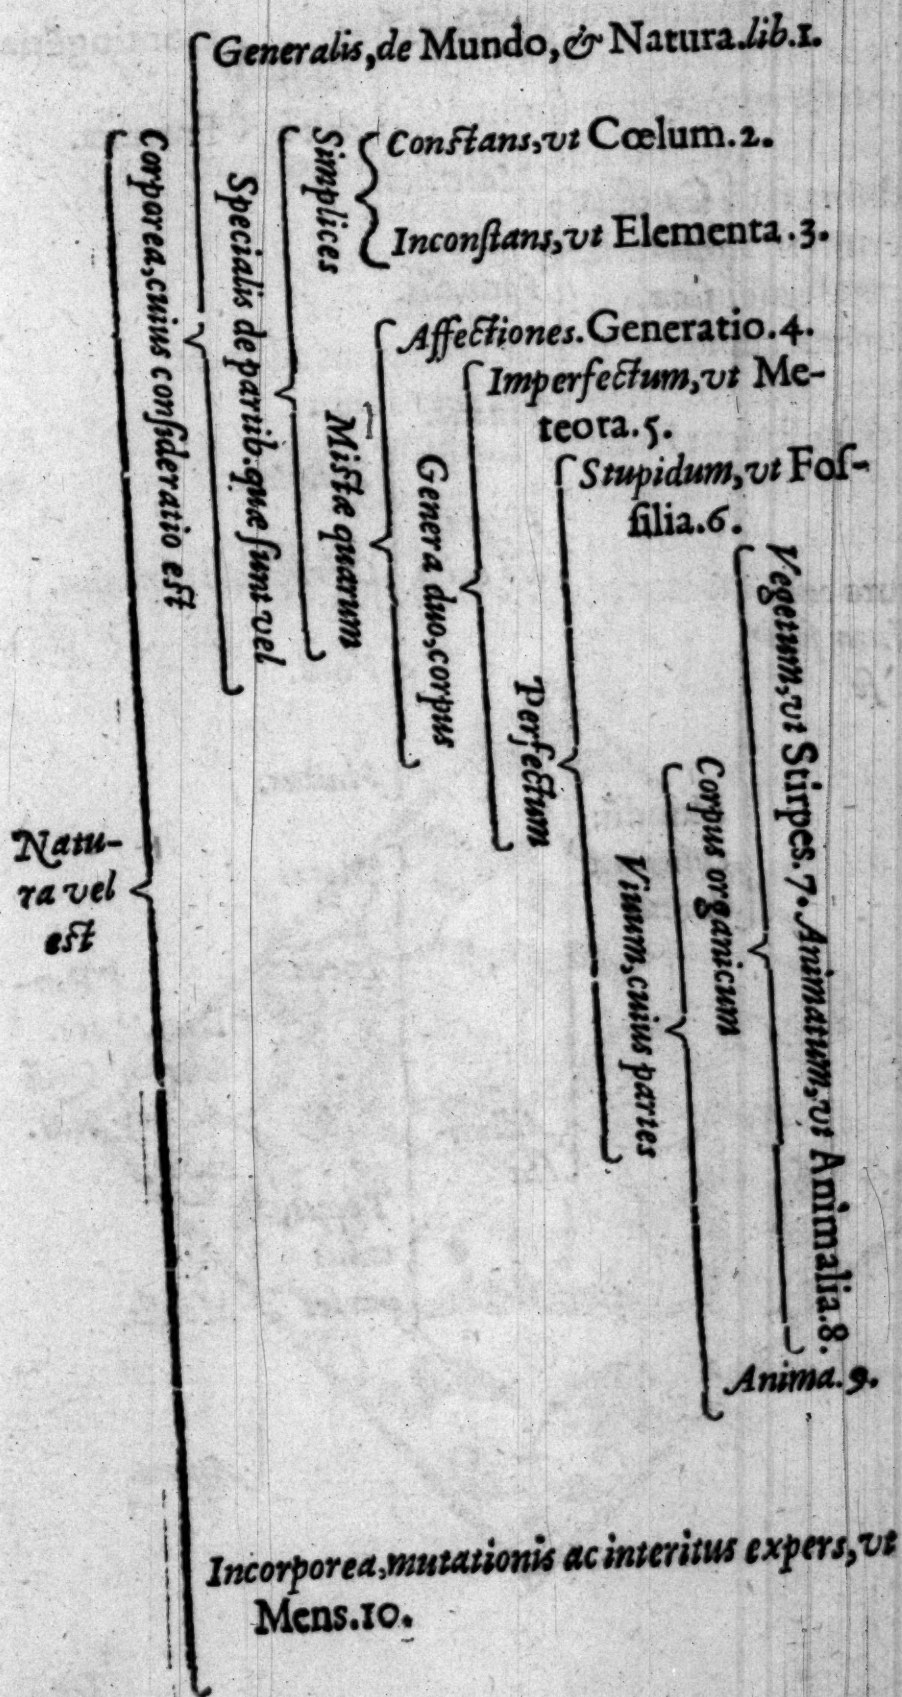 Natu-
ra vel
est
Corporea, cuius consideratio est
Generalis, de Mundo, & Natura. lib. 1.
Specialis de partib. quæ sunt vel
Simplices
Constans, vt Cœlum. 2.
Inconstans, vt Elementa. 3.
Mistæ quarum
Affectiones. Generatio. 4.
Genera duo, corpus
Imperfectum, vt Me-
teora. 5.
Perfectum
Stupidum, vt Fos-
silia. 6.
Viuum, cuius partes
Corpus organicum
Vegetum, vt Stirpes. 7. Animatum, vt Animalia. 8.
Anima. 9.
Incorporea, mutationis ac interitus expers, vt
Mens. 10.